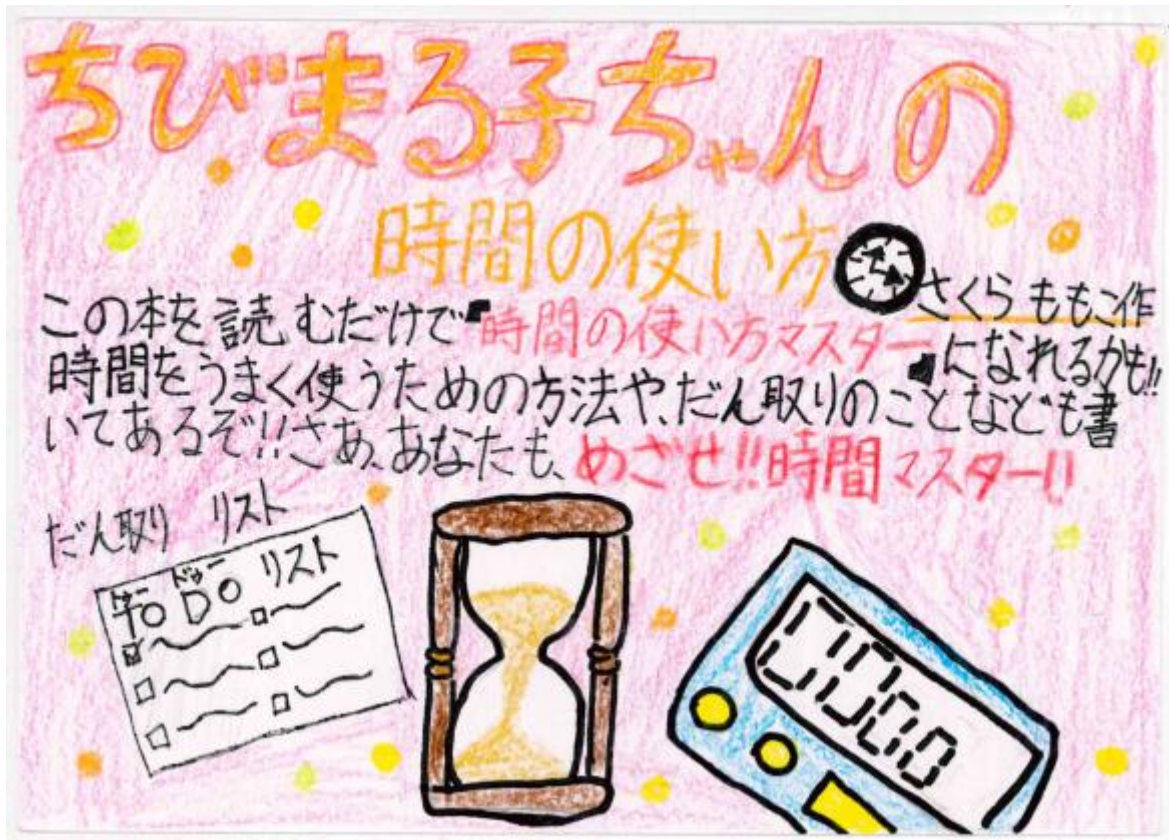 ちびまる子ちゃんの
時間の使い方
さくらももこ作
この本を読むだけで"時間の使い方マスター"になれるかも!!
時間をうまく使うための方法や、だん取りのことなども書
いてあるぞ!!さあ、あなたも、めざせ!!時間マスター!!
だん取り リスト
トゥー ドゥー
TO DO リスト
00:00